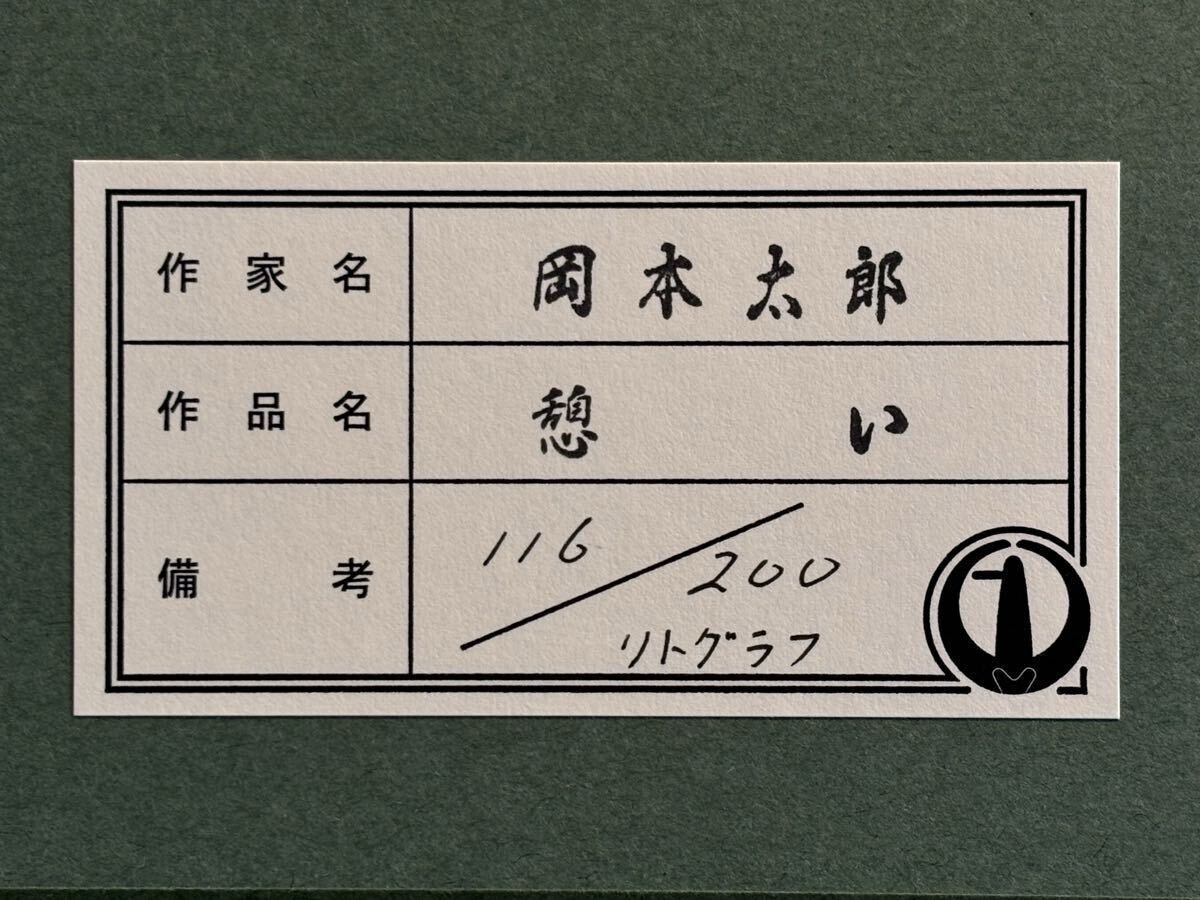 作家名 岡本太郎
作品名 憩い
備考 116/200
リトグラフ